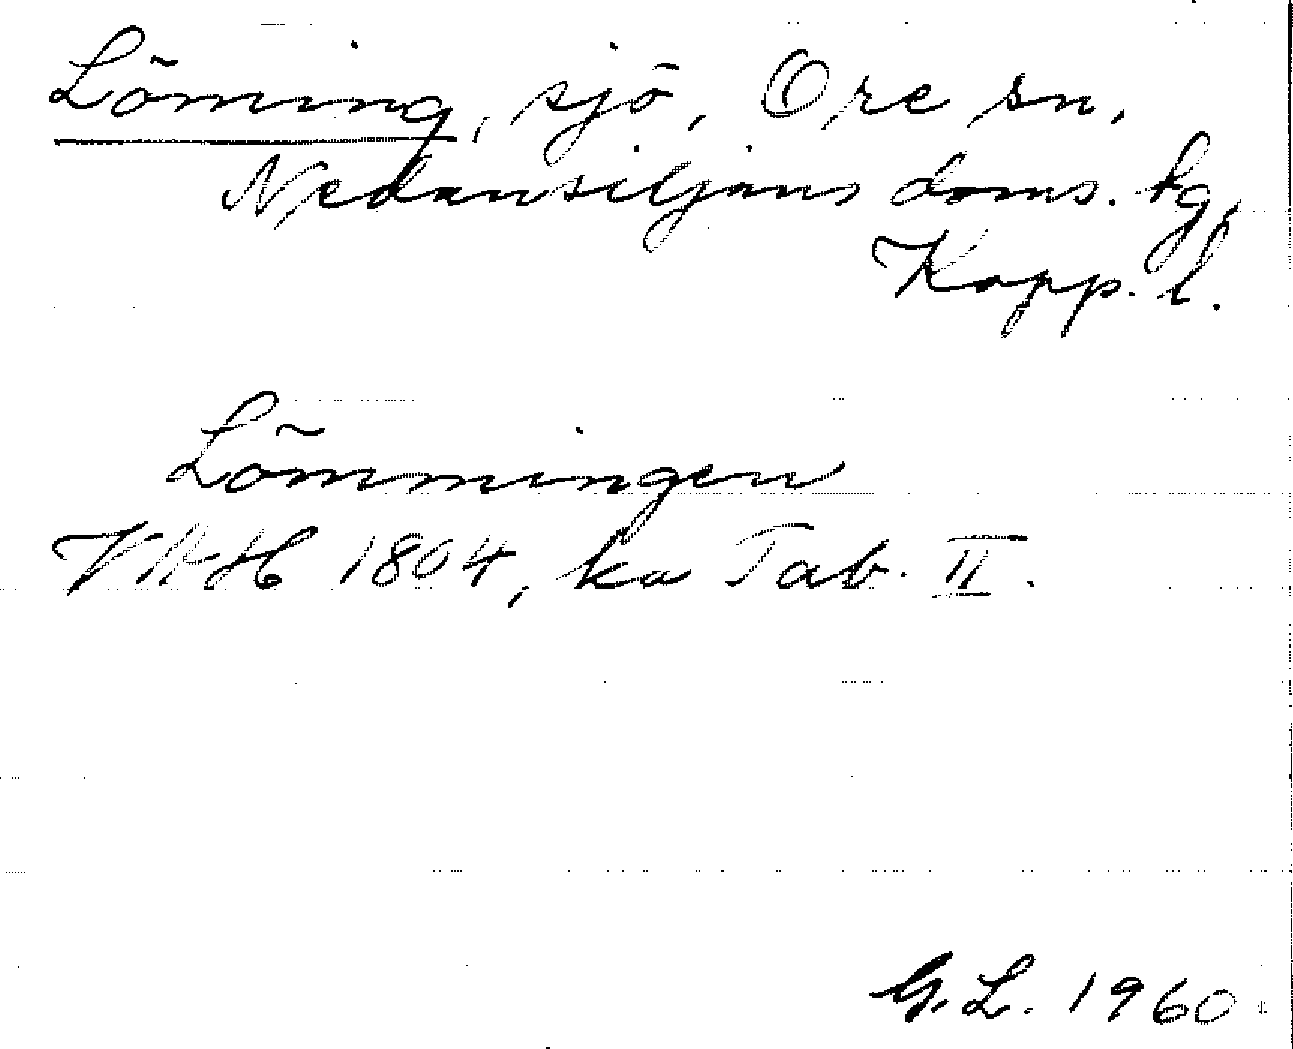 Löming, sjö, Ore sn,
Nedansiljans doms. hg,
Kopp. l.
Lömmingen
VAH 1804, ka Tab. II.
G.L. 1960